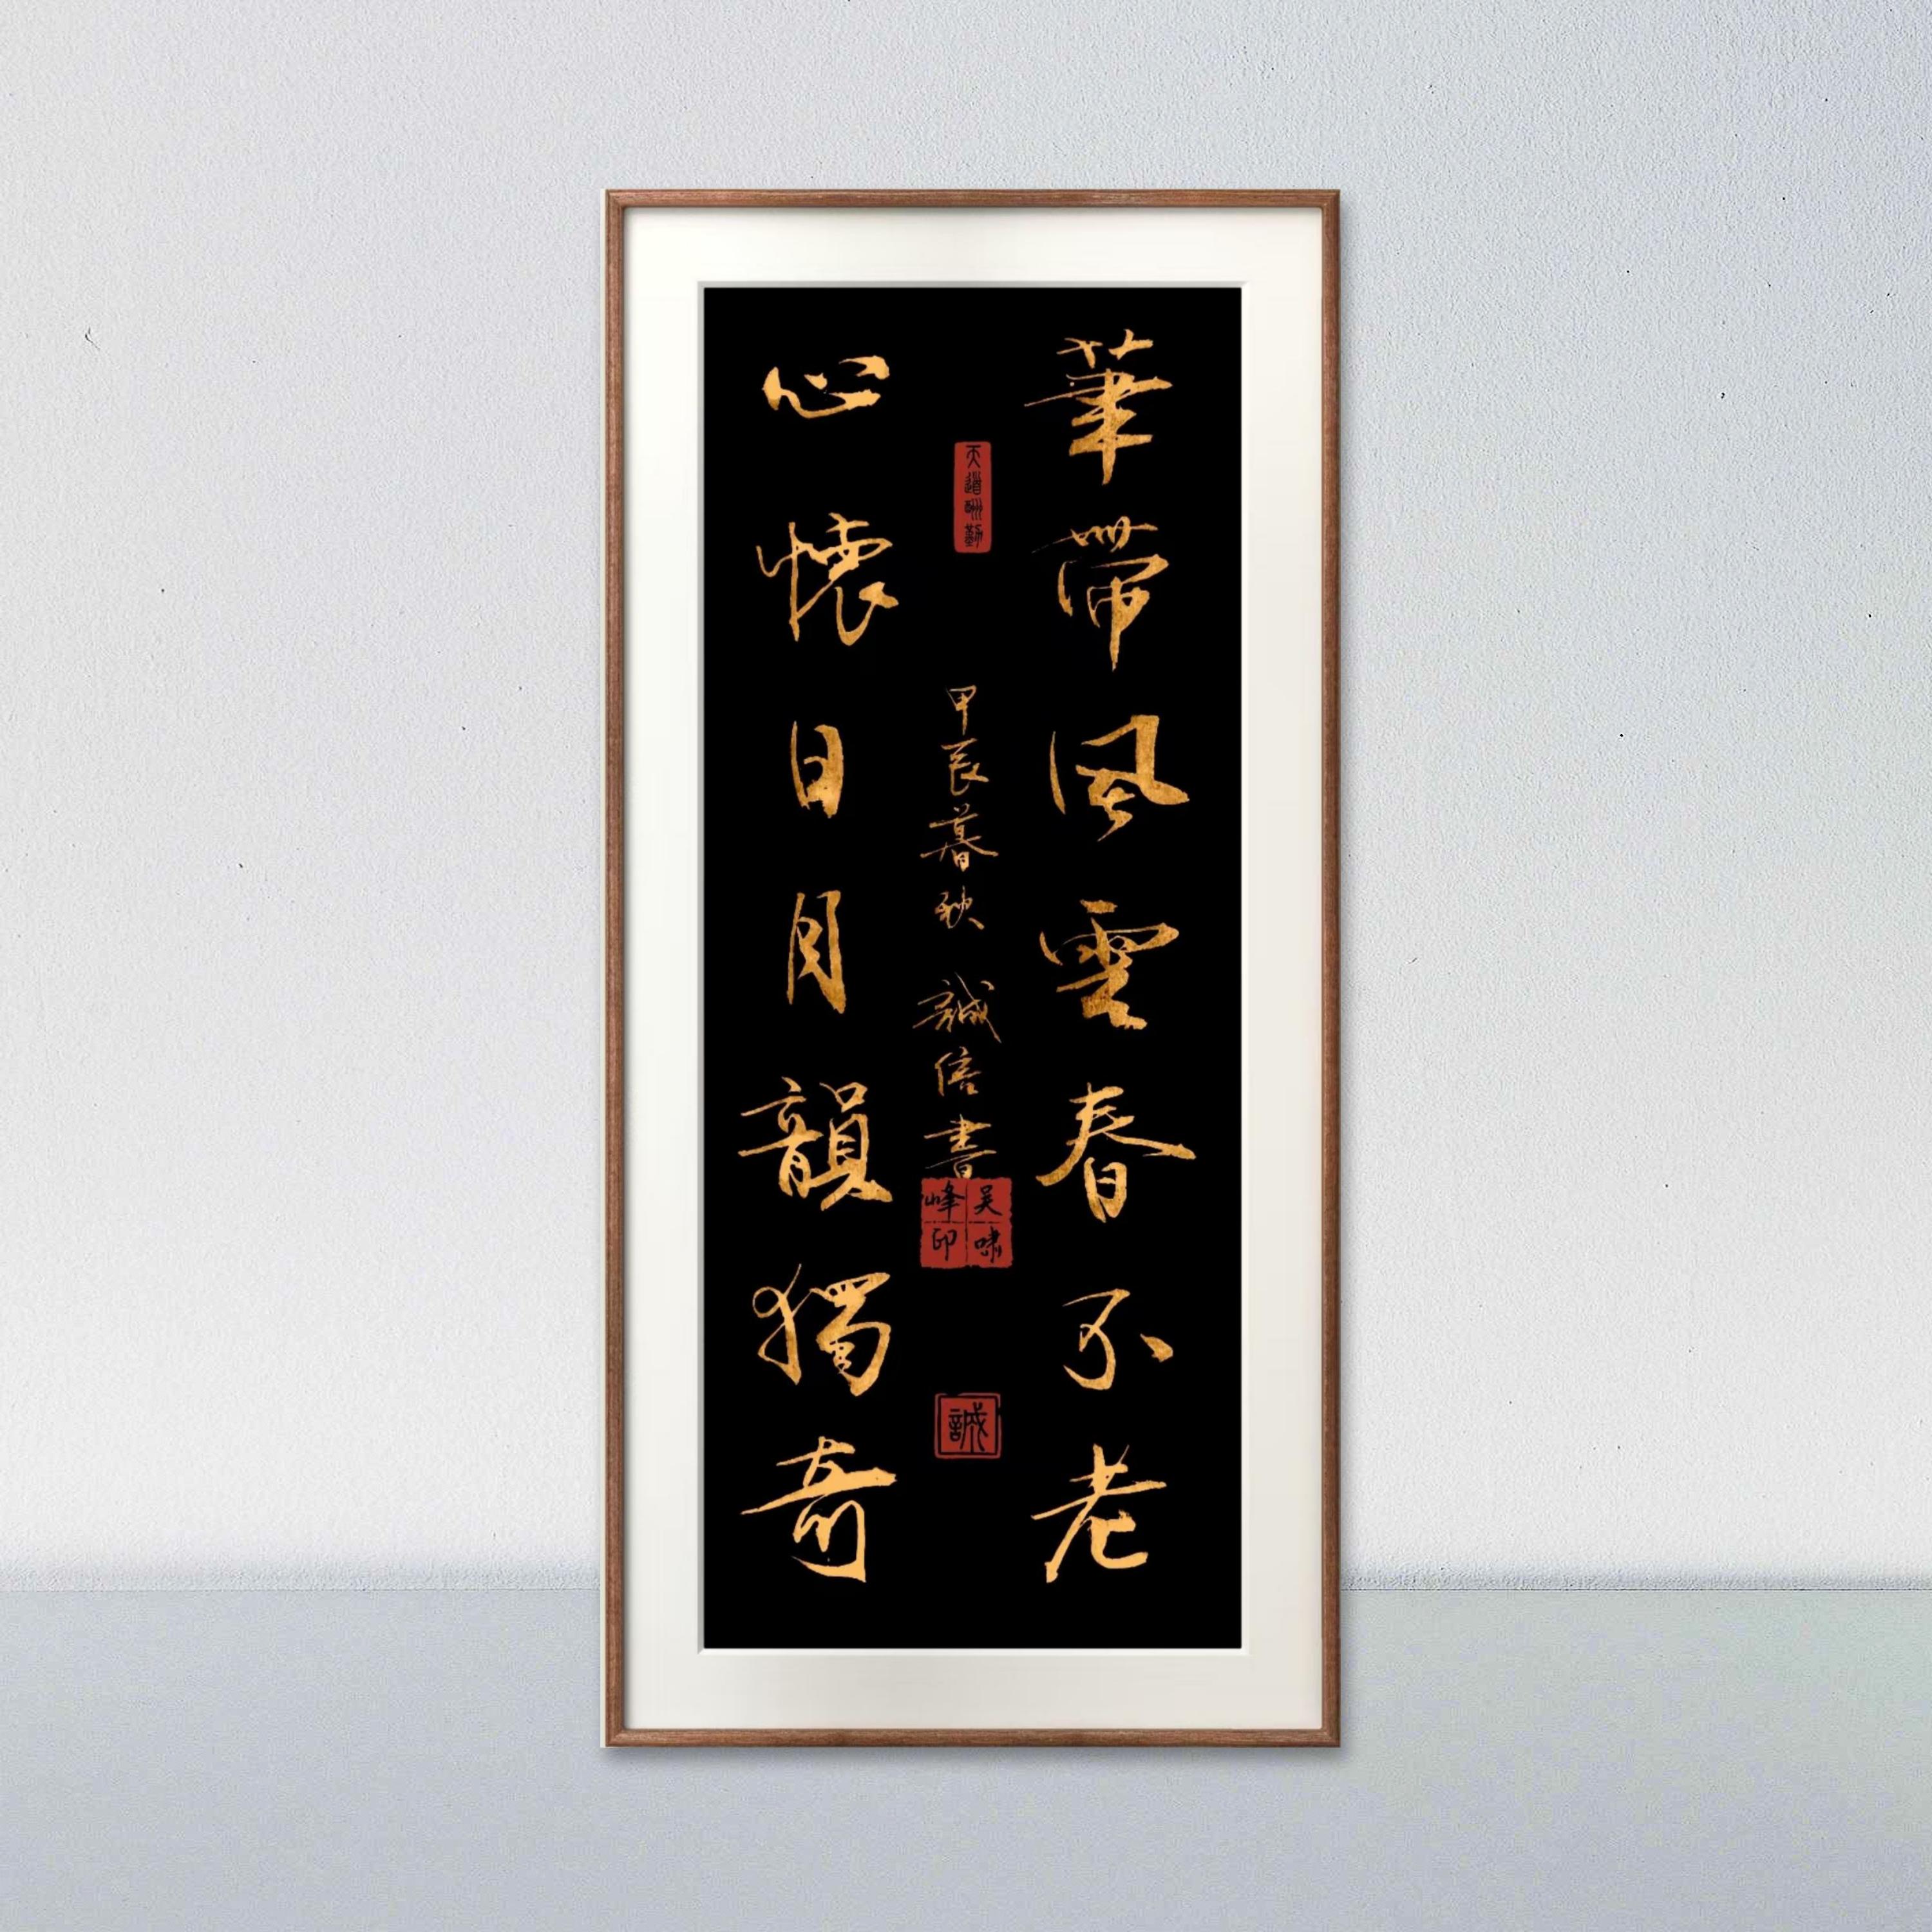 筆帶風雲春不老
心懷日月韻獨奇
天道酬勤
甲辰暮秋 誠信書
吴嘯峰印
誠